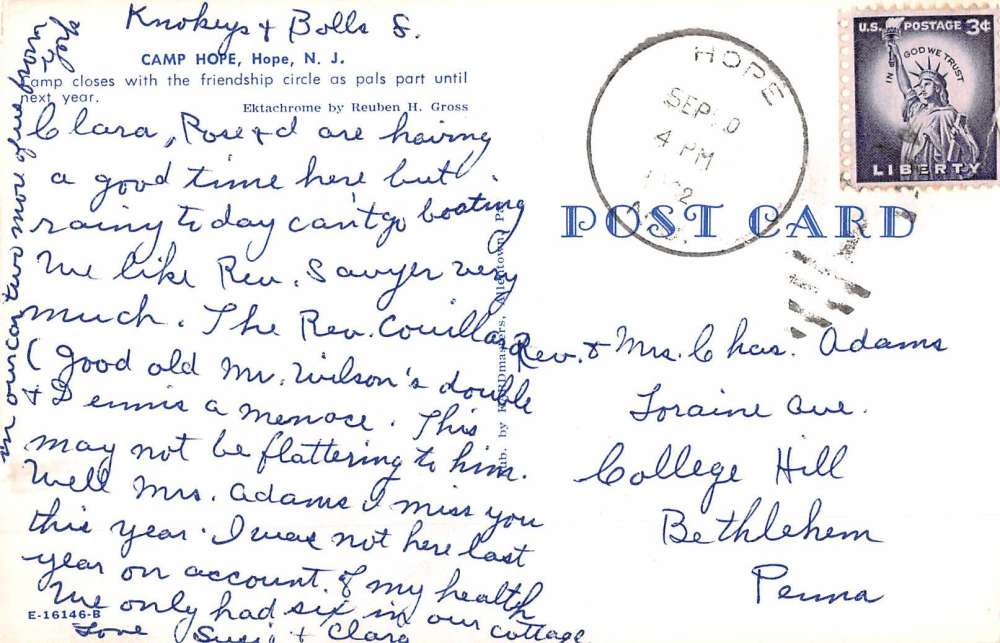 Knokeys & Bolls S.
CAMP HOPE, Hope, N. J.
Camp closes with the friendship circle as pals part until
next year.
Ektachrome by Reuben H. Gross
Clara, Rose & I are having
a good time here but
rainy today can't go boating
We like Rev. Sawyer very
much. The Rev. Couillard
(Good old Mr. Wilson's double
& Dennis a menace. This
may not be flattering to him.
Well Mrs. Adams I miss you
this year. I was not here last
year on account of my health
We only had six in our cottage
Love Susie & Clara
in our car two more of us from
E-16146-B
Pub. by CARDmasters, Allentown, Pa.
HOPE
SEP 10
4 PM
POST CARD
U.S. POSTAGE 3¢
IN GOD WE TRUST
LIBERTY
Rev. & Mrs. Chas. Adams
Loraine Ave.
College Hill
Bethlehem
Penna